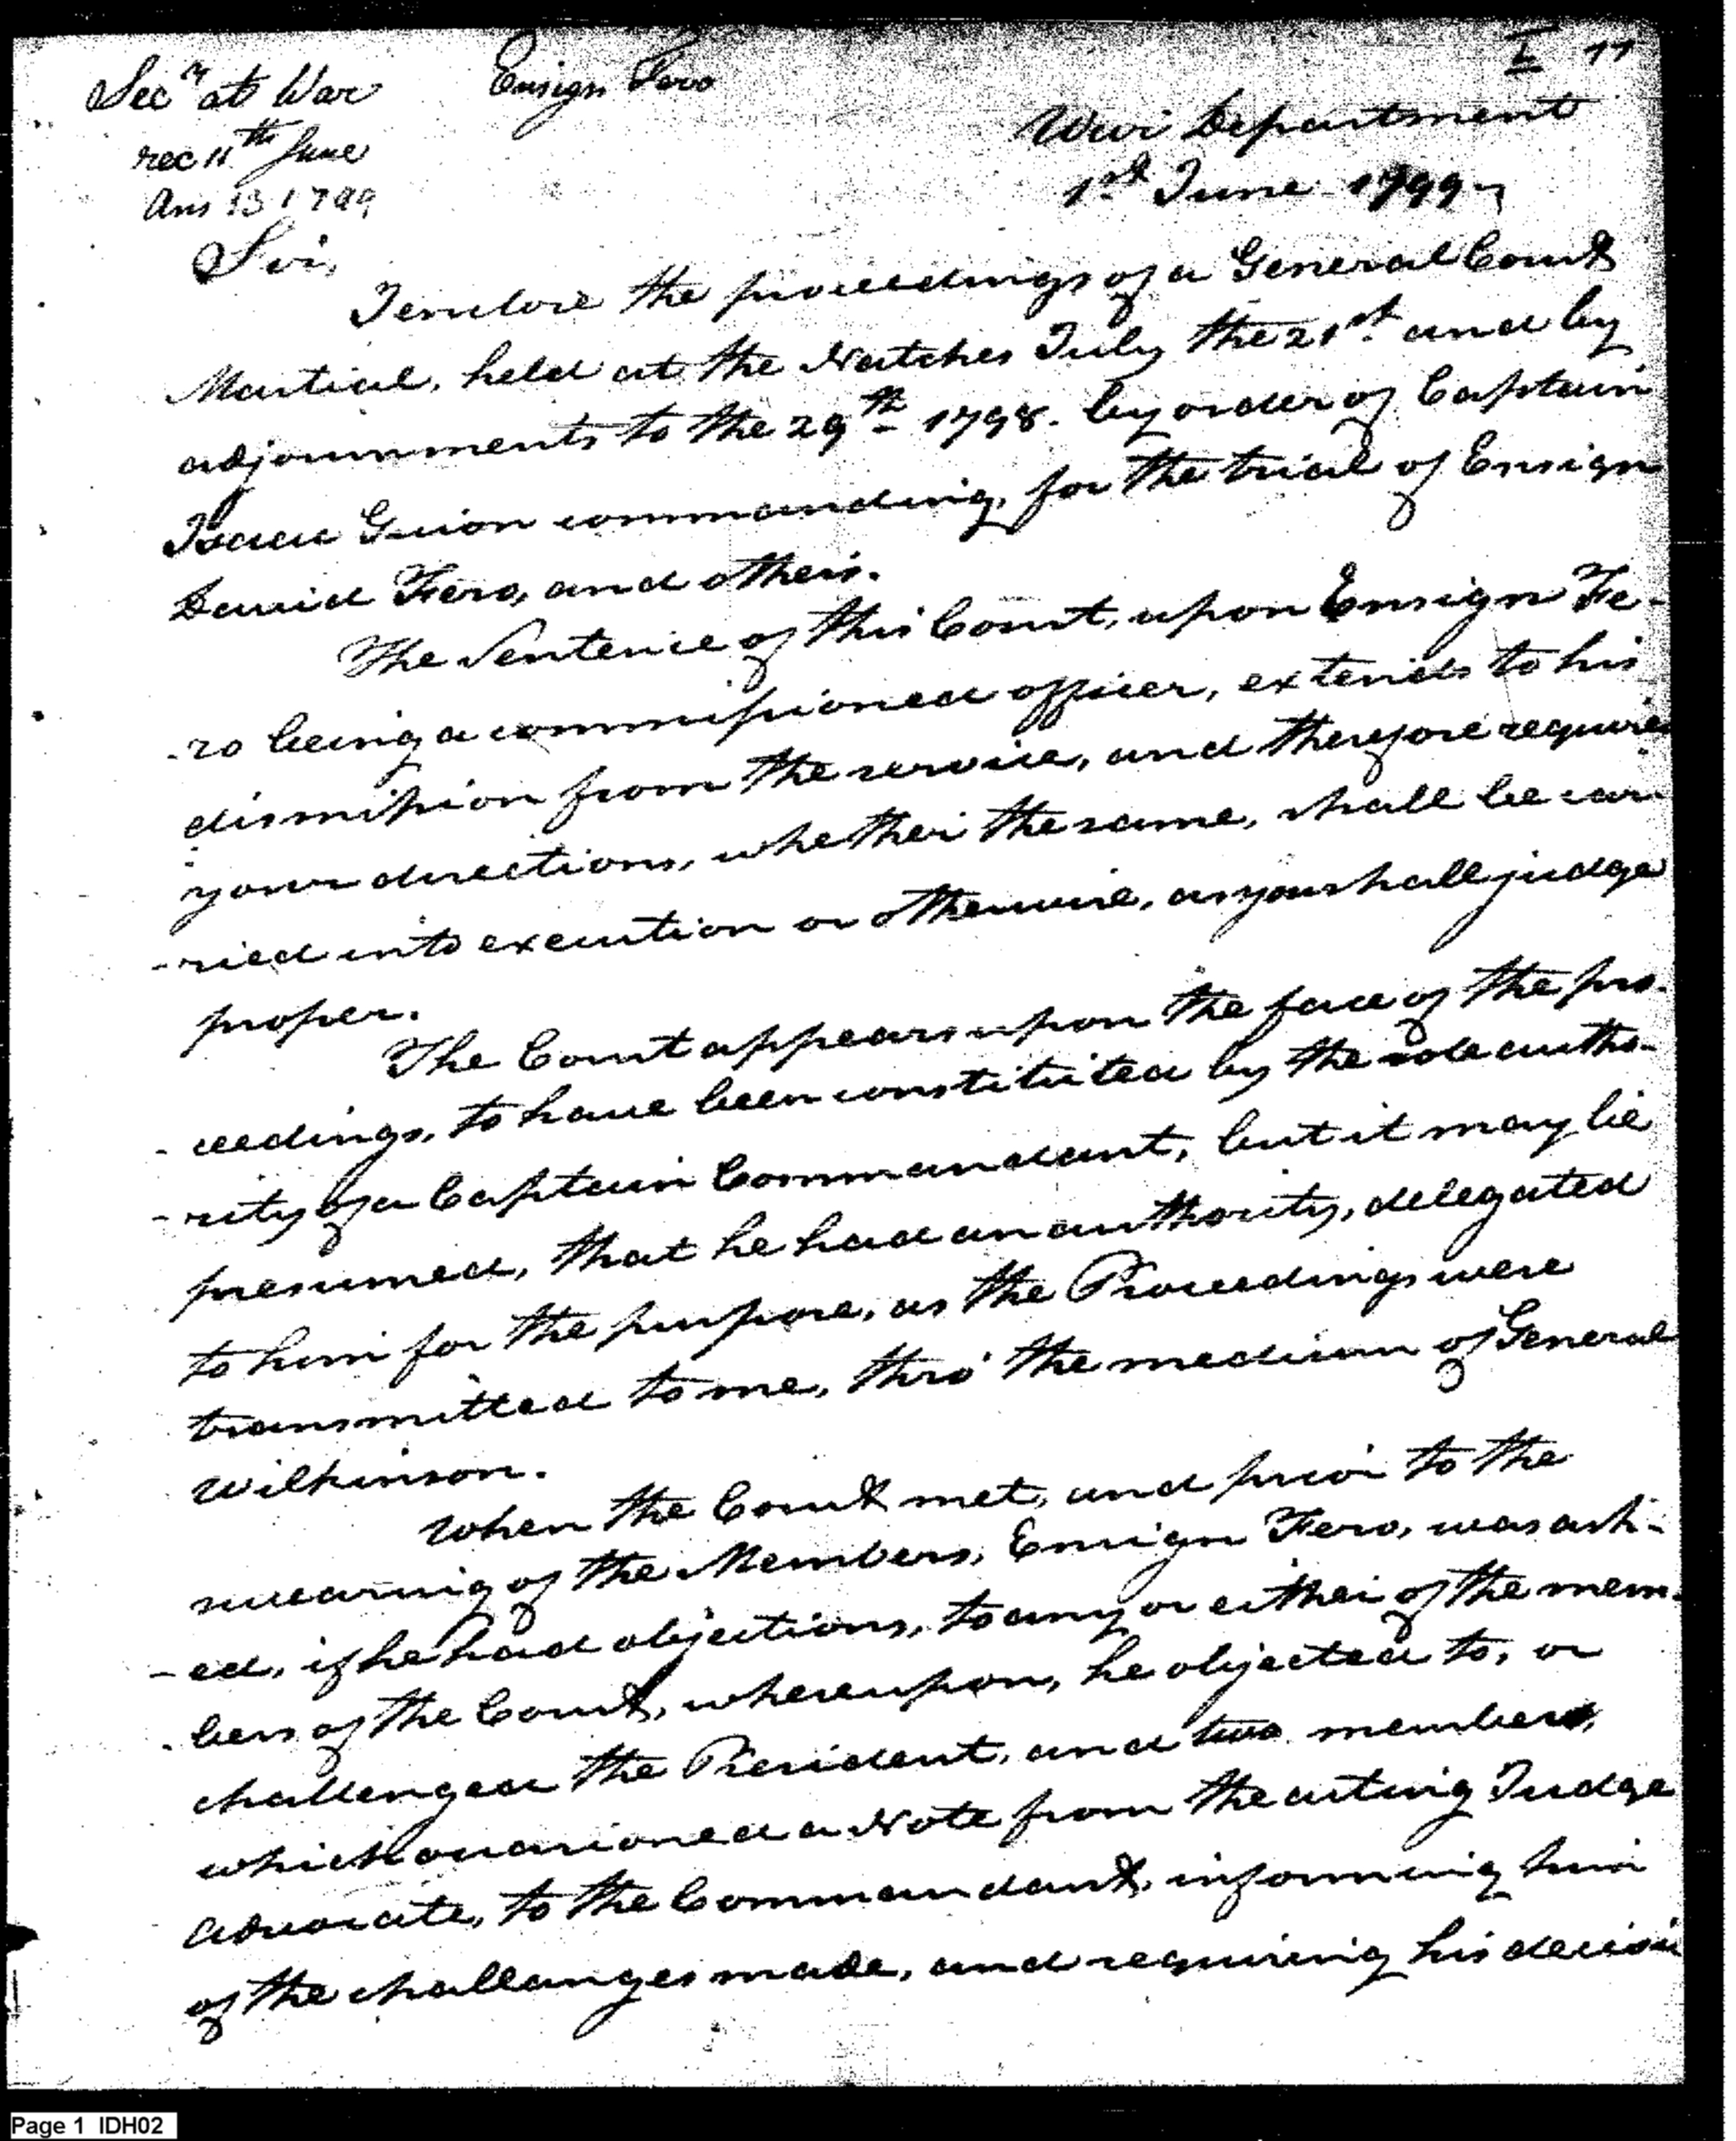 Secy at War
Ensign Fero
I 77
rec 11th June
Ans 13 1799
War Department
1st June 1799
Sir,
I enclose the proceedings of a General Court
Martial, held at the Natches July the 21st. and by
adjournments to the 29th 1798. by order of Captain
Isaac Guion commanding, for the trial of Ensign
David Fero, and others.
The Sentence of this Court, upon Ensign Fe-
-ro being a commissioned officer, extends to his
dismission from the service, and therefore requires
your directions, whether the same, shall be car-
-ried into execution or otherwise, as you shall judge
proper.
The Court appears upon the face of the pro-
-ceedings, to have been constituted by the sole autho-
-rity of a Captain Commandant, but it may be
presumed, that he had an authority, delegated
to him for the purpose, as the Proceedings were
transmitted to me, thro' the medium of General
Wilkinson.
When the Court met, and prior to the
swearing of the Members, Ensign Fero, was ask-
-ed, if he had objections, to any or either of the mem-
-bers of the Court, whereupon, he objected to, or
challenged the President, and two members,
which occasioned a Note from the acting Judge
advocate, to the Commandant, informing him
of the challanges made, and requiring his decision
Page 1 IDH02